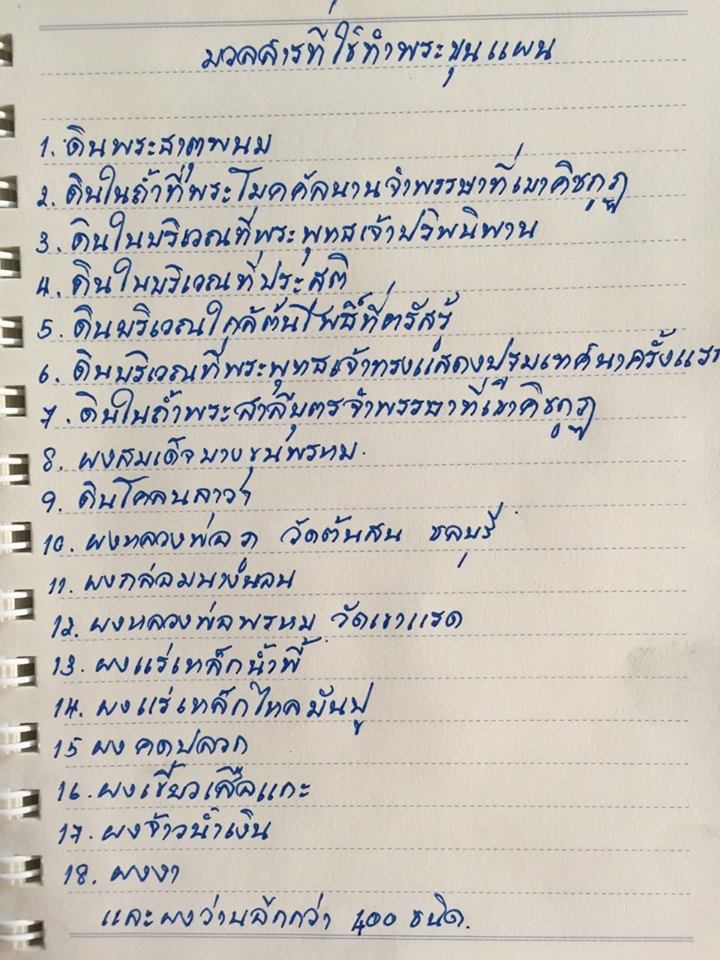 มวลสารที่ใช้ทำพระขุนแผน
1. ดินพระธาตุพนม
2. ดินในถ้ำที่พระโมคคัลนานจำพรรษาที่เขาคิชกูฏ
3. ดินในบริเวณที่พระพุทธเจ้าปรินิพาน
4. ดินในบริเวณที่ประสูติ
5. ดินบริเวณใกล้ต้นโพธิ์ที่ตรัสรู้
6. ดินบริเวณที่พระพุทธเจ้าทรงแสดงปฐมเทศนาครั้งแรก
7. ดินในถ้ำพระสาลีบุตรจำพรรษาที่เขาคิชกูฏ
8. ผงสมเด็จบางขุนพรหม.
9. ดินโคลนลาวา
10. ผงหลวงพ่อ วัดต้นสน ชลบุรี
11. ผงกล่อมนางนอน
12. ผงหลวงพ่อพรหม วัดเขา
13. ผงแร่เหล็กน้ำพี้
14. ผงแร่เหล็กไหลมันปู
15 ผงคดปลวก
16. ผงเขี้ยวเสือแกะ
17. ผงจ้าวน้ำเงิน
18. ผงงา
และผงว่านอีกกว่า 400 ชนิด.